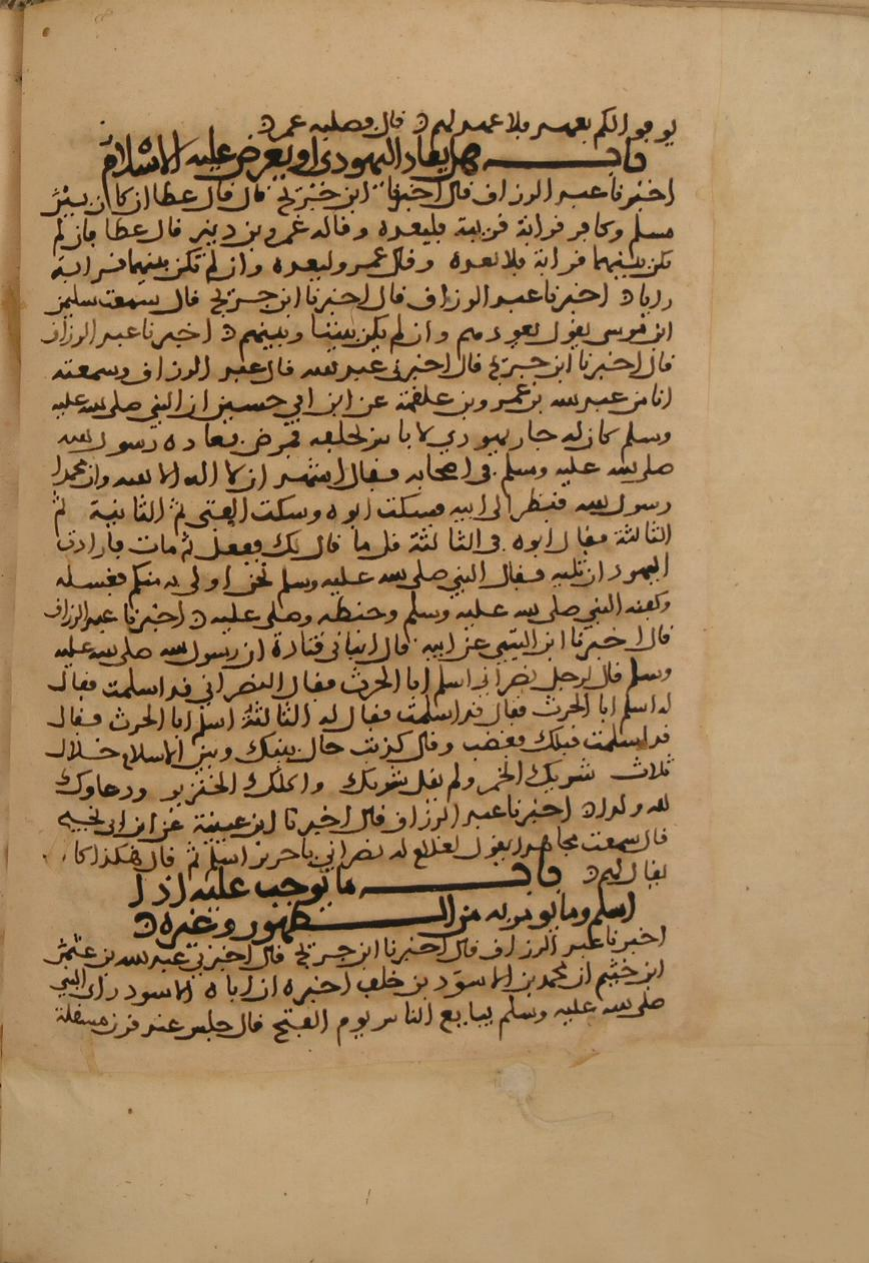 يوفوا لكم بعهد فلا عهد لهم قال وصلبه عمر
باب هل يعاد اليهودي او يعرض عليه الاسلام
اخبرنا عبد الرزاق قال اخبرنا ابن جريج قال قال عطا ان كان بين
مسلم وكافر قرابة قريبة فليعده وقاله عمرو بن دينر قال عطا فان لم
تكن بينهما قرابة فلا يعده وقال عمرو ليعده وان لم تكن بينهما قرابة
رايا اخبرنا عبد الرزاق قال اخبرنا ابن جريج قال سمعت سليمن
ابن موسى يقول نعودهم وان لم يكن بيننا وبينهم اخبرنا عبد الرزاق
قال اخبرنا ابن جريج قال اخبرني عبد الله قال عبد الرزاق وسمعته
انا من عبد الله بن عمرو بن علقمة عن ابن ابي حسين ان النبي صلى الله عليه
وسلم كان له جار يهودي لا باس بخلقه فمرض فعاده رسول الله
صلى الله عليه وسلم في اصحابه فقال اتشهد ان لا اله الا الله وان محمدا
رسول الله فنظر الى ابيه فسكت ابوه وسكت الفتى ثم الثانية ثم
الثالثة فقال ابوه في الثالثة قل ما قال لك ففعل ثم مات فارادت
اليهود ان تليه فقال النبي صلى الله عليه وسلم نحن اولى به منكم فغسله
وكفنه النبي صلى الله عليه وسلم وحنطه وصلى عليه اخبرنا عبد الرزاق
قال اخبرنا ابن التيمي عن ابيه قال انباني قتادة ان رسول الله صلى الله عليه
وسلم قال لرجل نصراني اسلم ابا الحرث فقال النصراني قد اسلمت فقال
له اسلم ابا الحرث فقال قد اسلمت فقال له الثالثة اسلم ابا الحرث فقال
قد اسلمت قبلك فغضب وقال كذبت حال بينك وبين الاسلام خلال
ثلاث شربك الخمر ولم يقل شربك واكلك الخنزير ودعاوك
لله ولدا اخبرنا عبد الرزاق قال اخبرنا ابن عيينة عن ابن ابي نجيح
قال سمعت مجاهدا يقول لغلام له نصراني يا جرير اسلم ثم قال هكذا كان
يقال لهم باب ما يوجب عليه اذا
اسلم وما يومر به من الطهور وغيره
اخبرنا عبد الرزاق قال اخبرنا ابن جريج قال اخبرني عبد الله بن عثمن
ابن خثيم ان محمد بن الاسود بن خلف اخبره ان اباه الاسود راى النبي
صلى الله عليه وسلم يبايع الناس يوم الفتح قال جلس عند قرن مسقلة